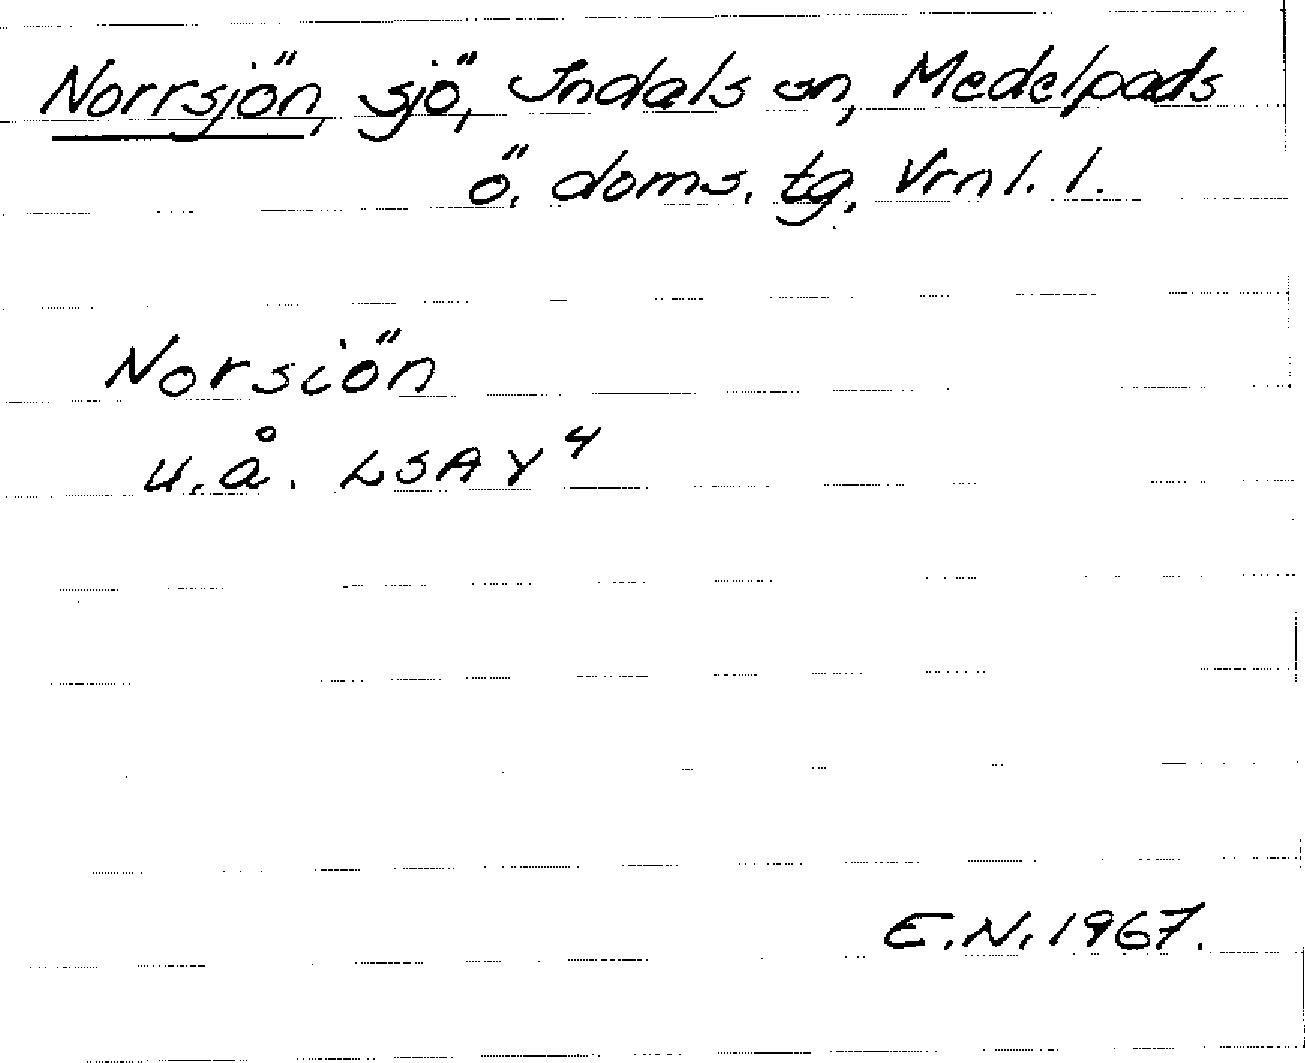 Norrsjön, sjö, Indals sn, Medelpads
ö. doms. tg, Vrnl. l.
Norsiön
u.å. LSA Y⁴
E.N. 1967.